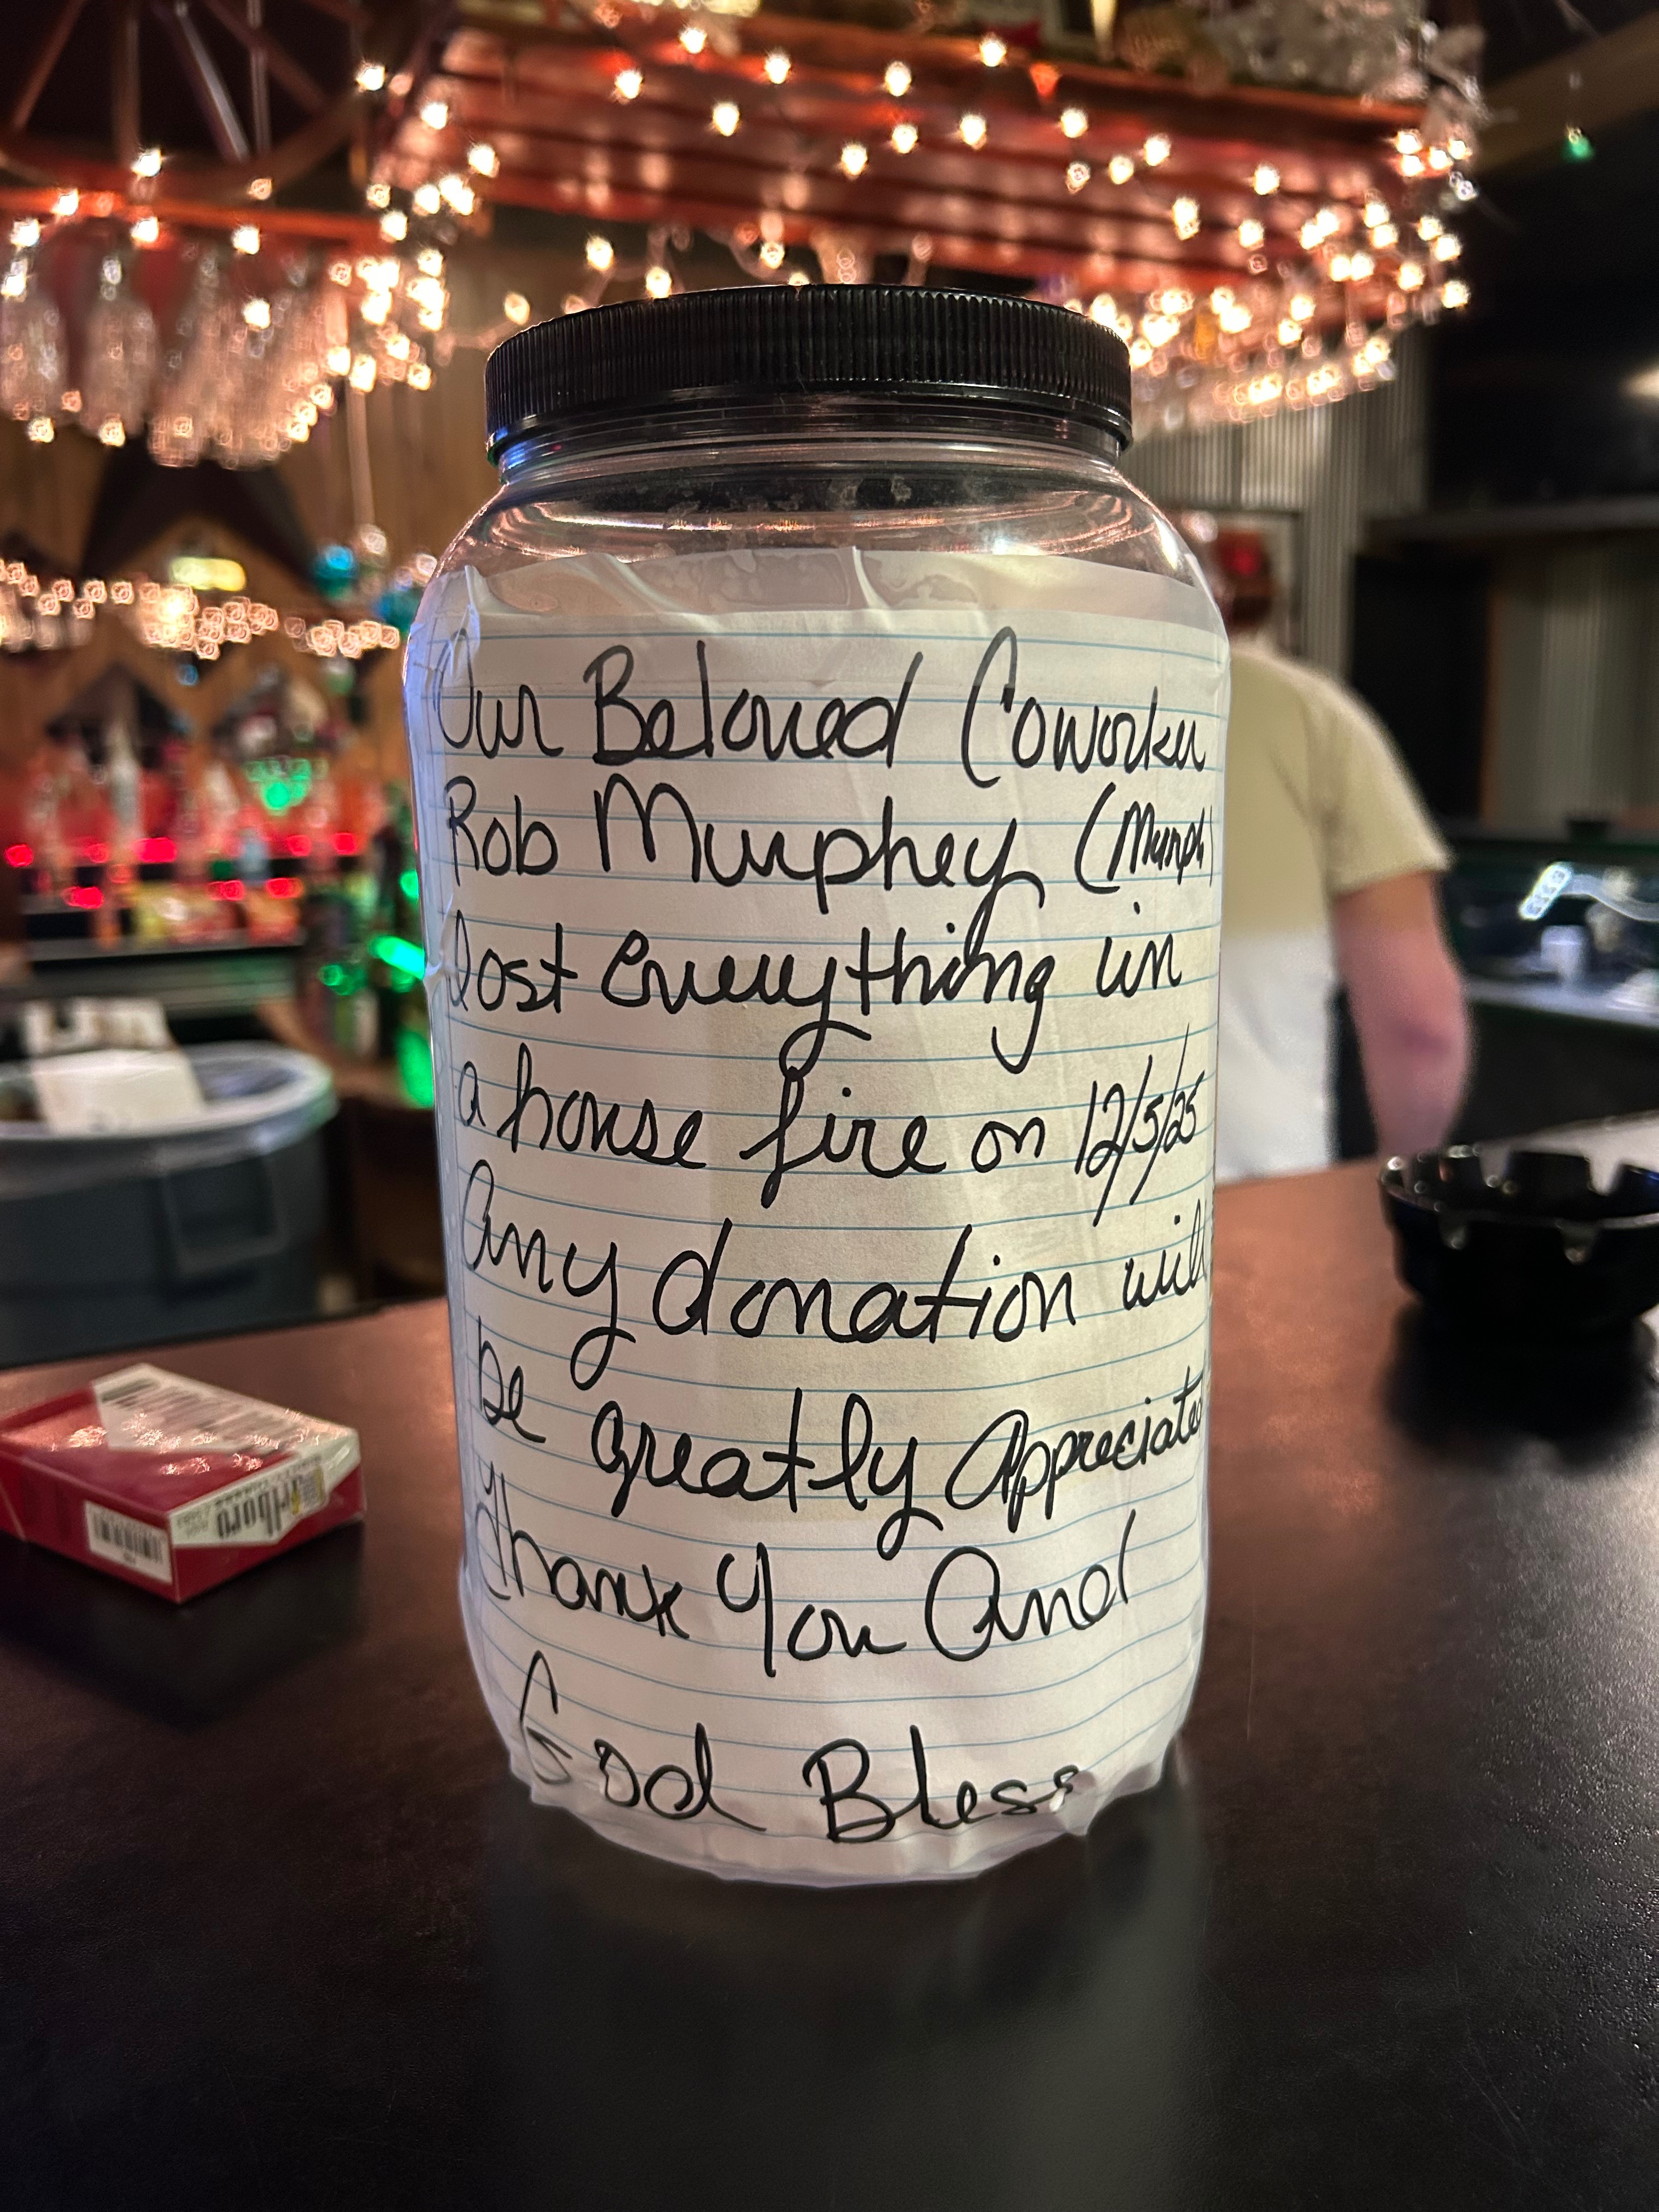 Our Beloved Coworker
Rob Murphey (Murph)
lost everything in
a house fire on 12/5/25
Any donation will
be greatly Appreciated
Thank You And
God Bless
Marlboro